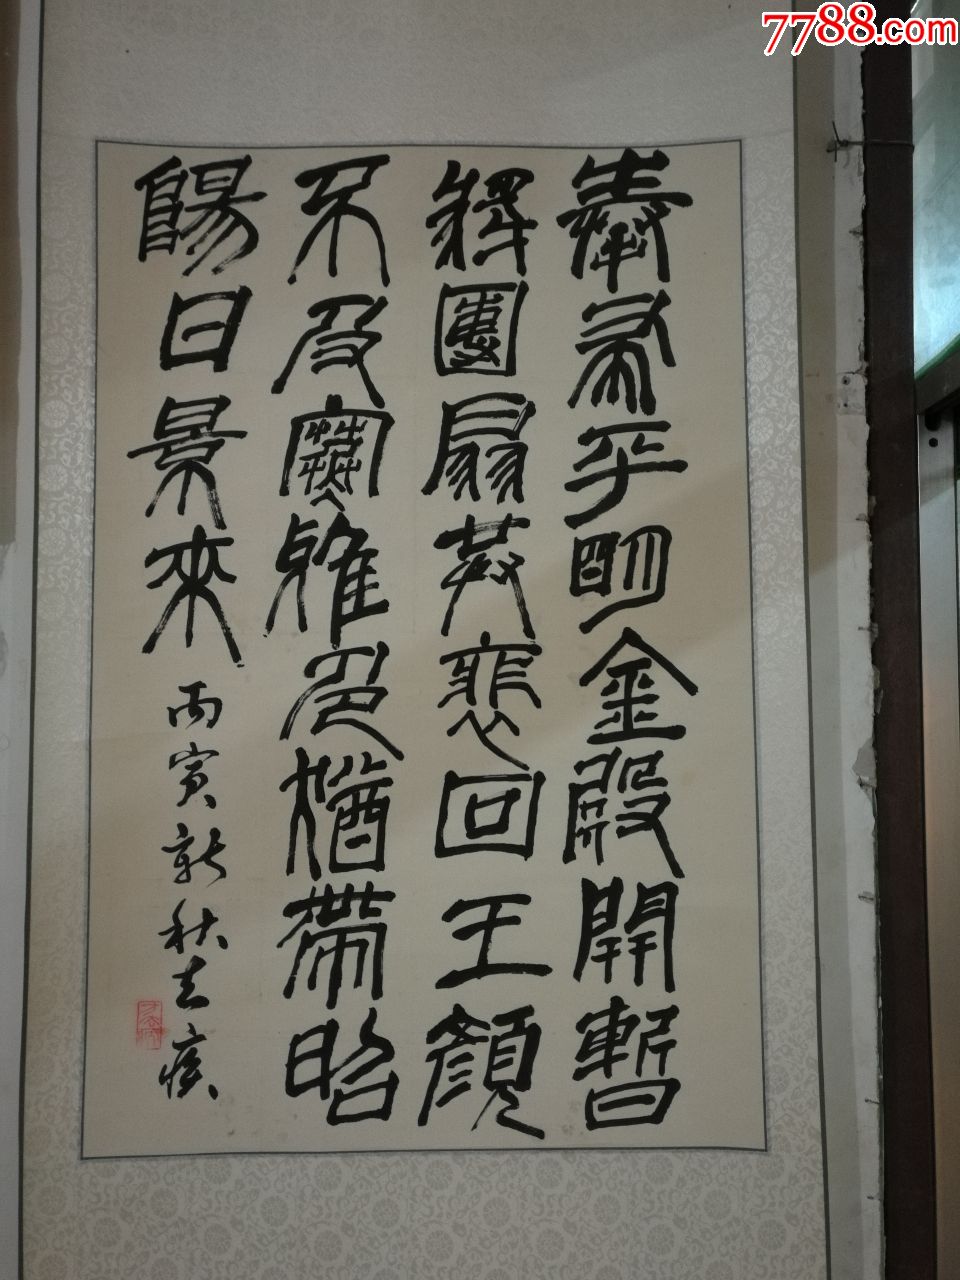 奉帚平明金殿開暫
將團扇共裴回玉顏
不及寒雅色猶帶昭
陽日景來
丙寅新秋去疾
7788.com